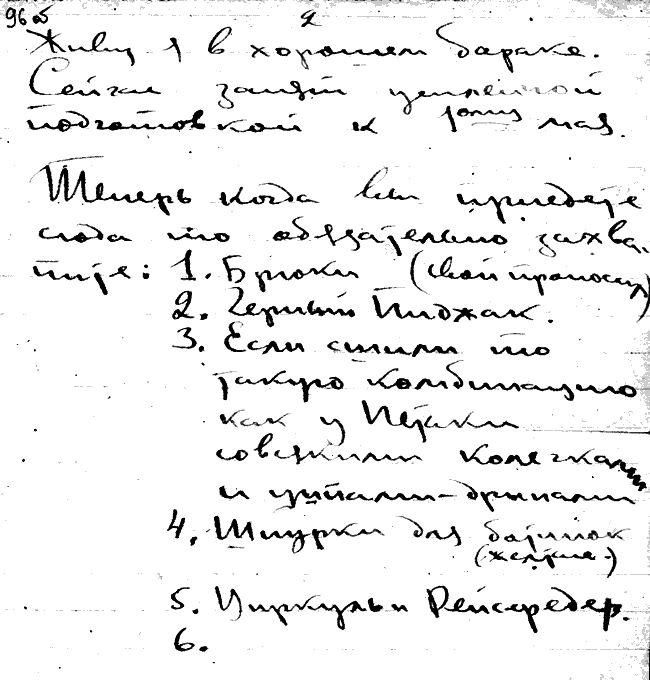 96 об 2
Живу я в хорошем бараке.
Сейчас занят усиленной
подготовкой к 1ому мая.
Теперь когда вы приедете
сюда то обязательно захва-
тите: 1. Брюки (свои проносил)
2. Черный Пиджак.
3. Если сшили то
такую комбинацию
как у Петьки
со всякими колечками
и
4. Шнурки для ботинок
(желтые.)
5. Циркуль и Рейсфедер.
6.